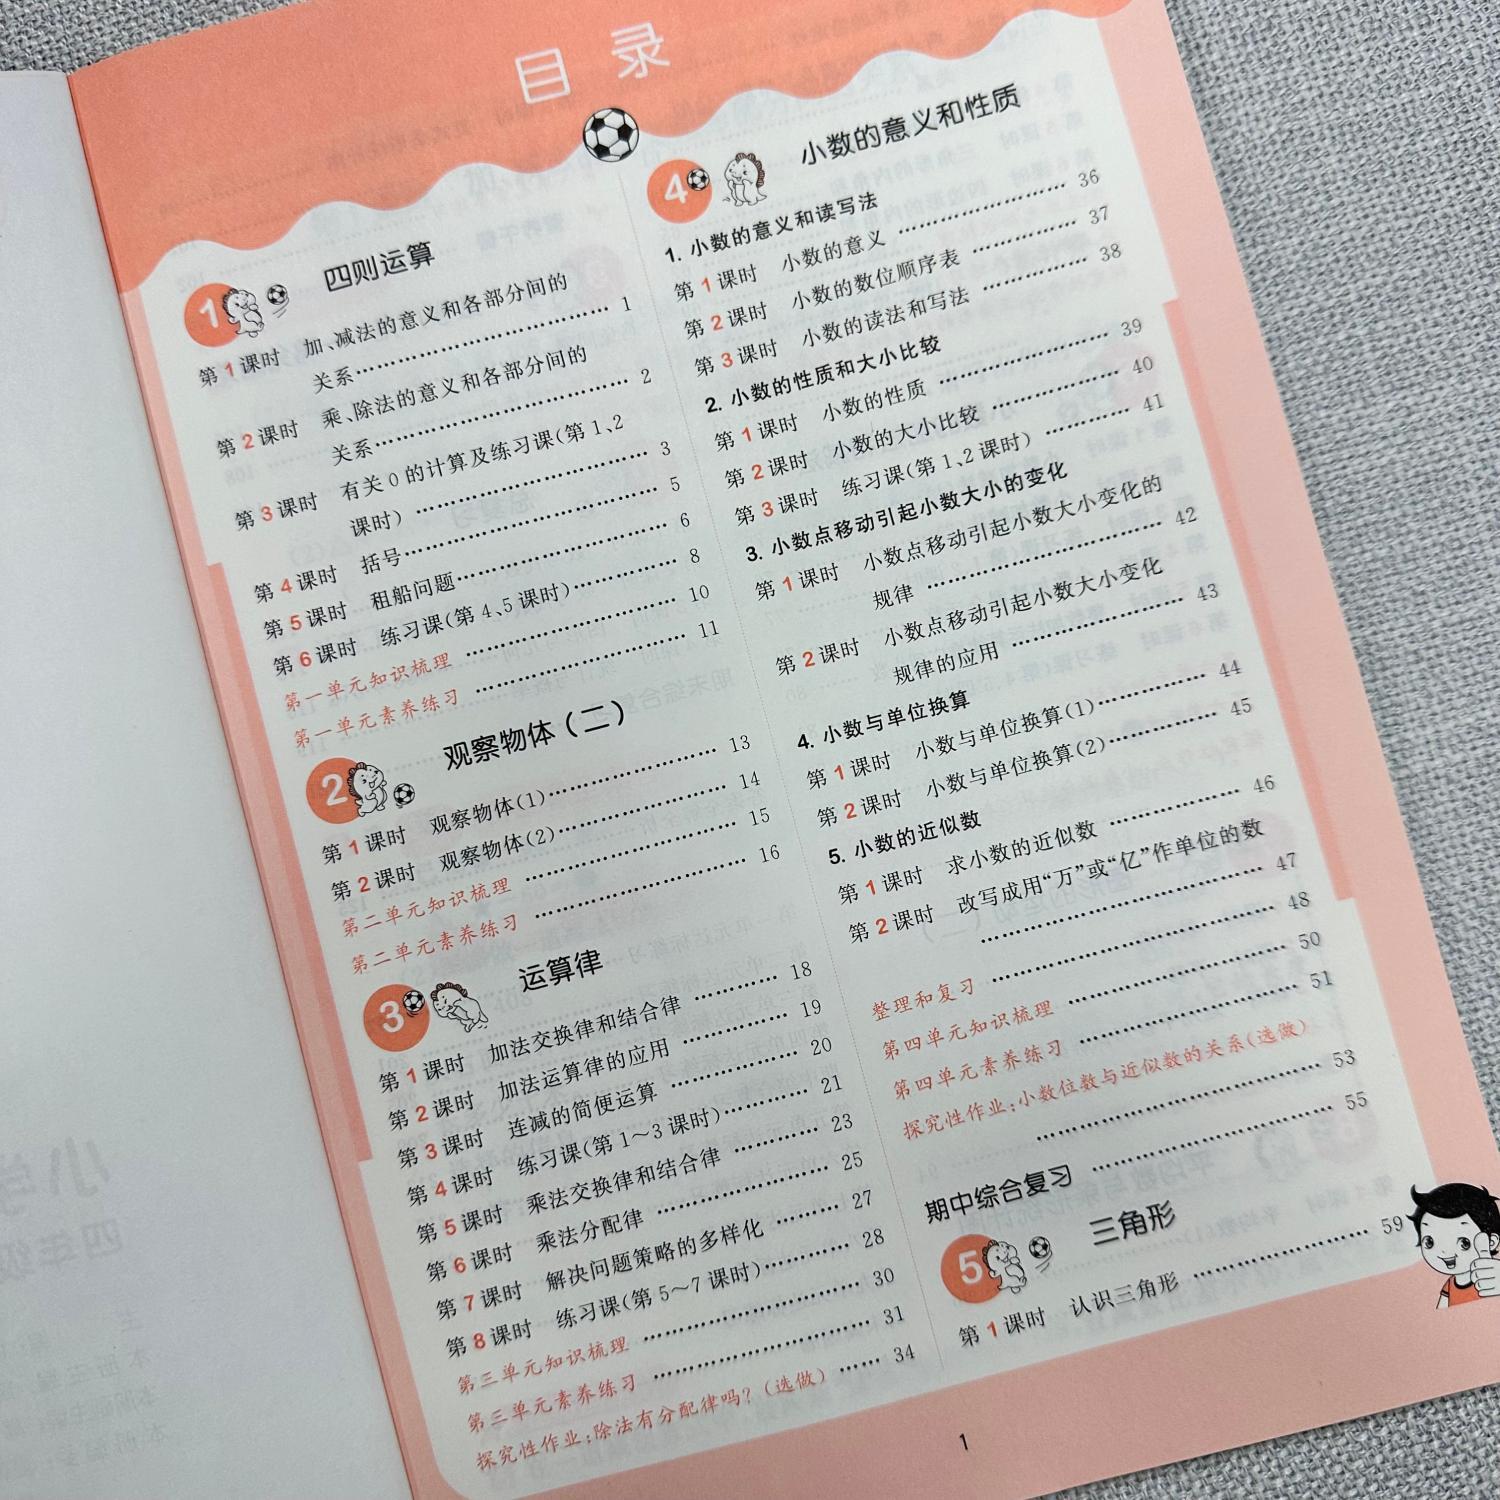 目 录
1 四则运算
第1课时 加、减法的意义和各部分间的
关系…………………………… 1
第2课时 乘、除法的意义和各部分间的
关系…………………………… 2
第3课时 有关0的计算及练习课(第1、2
课时) ………………………… 3
第4课时 括号…………………………… 5
第5课时 租船问题……………………… 6
第6课时 练习课(第4、5课时)………… 8
第一单元知识梳理 ……………………… 10
第一单元素养练习 ……………………… 11
2 观察物体(二)
第1课时 观察物体(1)………………… 13
第2课时 观察物体(2)………………… 14
第二单元知识梳理 ……………………… 15
第二单元素养练习 ……………………… 16
3 运算律
第1课时 加法交换律和结合律 ………… 18
第2课时 加法运算律的应用 …………… 19
第3课时 连减的简便运算 ……………… 20
第4课时 练习课(第1～3课时)………… 21
第5课时 乘法交换律和结合律 ………… 23
第6课时 乘法分配律 …………………… 25
第7课时 解决问题策略的多样化 ……… 27
第8课时 练习课(第5～7课时)………… 28
第三单元知识梳理 ……………………… 30
第三单元素养练习 ……………………… 31
探究性作业:除法有分配律吗?(选做) …… 34
4 小数的意义和性质
1. 小数的意义和读写法
第1课时 小数的意义 …………………… 36
第2课时 小数的数位顺序表 …………… 37
第3课时 小数的读法和写法 …………… 38
2. 小数的性质和大小比较
第1课时 小数的性质 …………………… 39
第2课时 小数的大小比较 ……………… 40
第3课时 练习课(第1、2课时) ………… 41
3. 小数点移动引起小数大小的变化
第1课时 小数点移动引起小数大小变化的
规律 …………………………… 42
第2课时 小数点移动引起小数大小变化
规律的应用 …………………… 43
4. 小数与单位换算
第1课时 小数与单位换算(1)………… 44
第2课时 小数与单位换算(2)………… 45
5. 小数的近似数
第1课时 求小数的近似数 ……………… 46
第2课时 改写成用“万”或“亿”作单位的数
…………………………………… 47
整理和复习 ……………………………… 48
第四单元知识梳理 ……………………… 50
第四单元素养练习 ……………………… 51
探究性作业:小数位数与近似数的关系(选做)
…………………………………… 53
期中综合复习 …………………………… 55
5 三角形
第1课时 认识三角形 …………………… 59
1